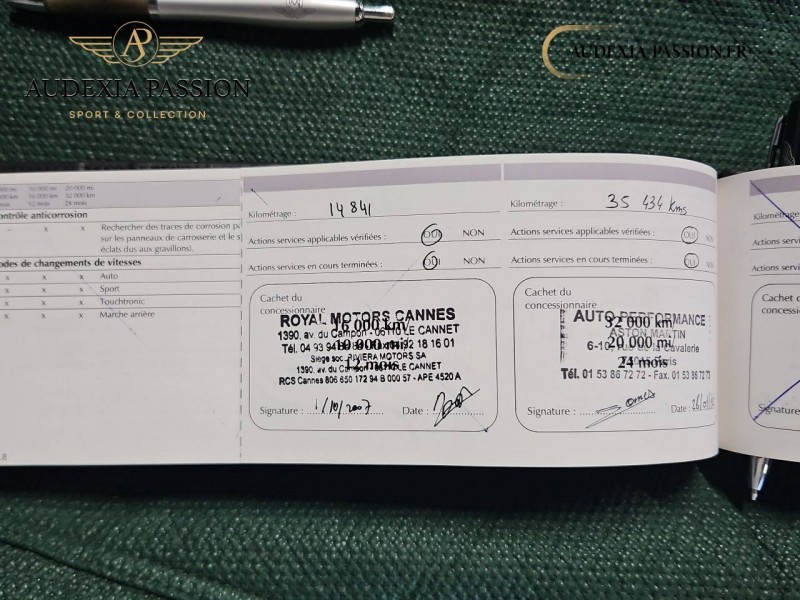 AP
AUDEXIA PASSION
SPORT & COLLECTION
AUDEXIA-PASSION.FR
10 000 mi 20 000 mi
16 000 km 32 000 km
12 mois 24 mois
ontrôle anticorrosion
– x x Rechercher des traces de corrosion
sur les panneaux de carrosserie et le
éclats dus aux gravillons).
odes de changements de vitesses
x x x Auto
x x x Sport
x x x Touchtronic
x x x Marche arrière
.8
Kilométrage : 14 841
Actions services applicables vérifiées : OUI NON
Actions services en cours terminées : OUI NON
Cachet du
concessionnaire
ROYAL MOTORS CANNES
16 000 km
1390, av. du Campon - 06110 LE CANNET
10 000 mi
Siège soc. RIVIERA MOTORS SA
12 mois
1390, av. du Campon LE CANNET
RCS Cannes 806 650 172 94 B 000 57 - APE 4520 A
Signature : 1/10/2007 Date :
Kilométrage : 35 434 Kms
Actions services applicables vérifiées : OUI NON
Actions services en cours terminées : OUI NON
Cachet du
concessionnaire
AUTO PERFORMANCE
32 000 km
ASTON MARTIN
20 000 mi
6-10, rue de la Cavalerie
24 mois
75015 Paris
Tél. 01 53 86 72 72 - Fax. 01 53 86 72 73
Signature : Date :
Kilométrage
Actions serv
Actions serv
Cachet
conce
Signatur